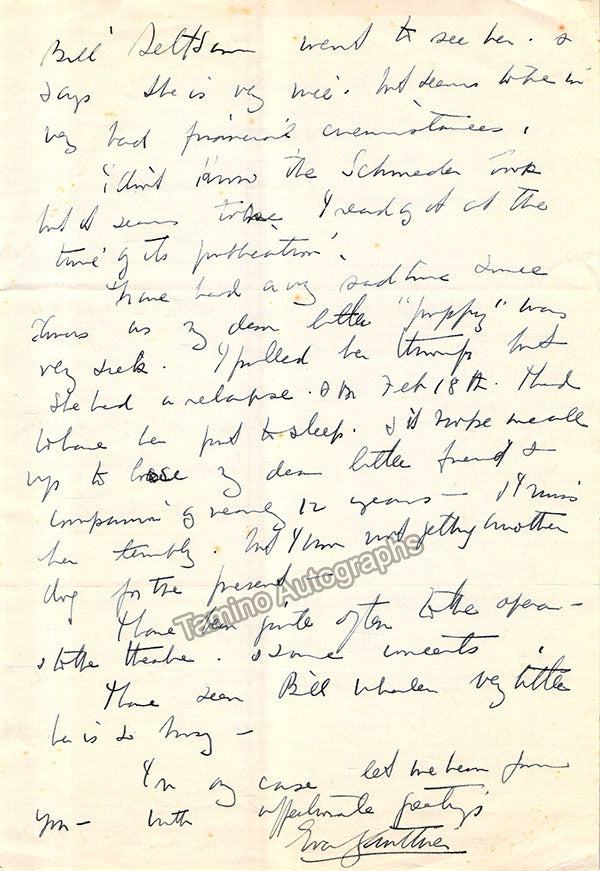 Bill Seltsam went to see her. &
says she is very nice. but seems to be in
very bad financial circumstances.
I don't know the Schmeder book
but it seems to me I read of it at the
time of its publication.
I have had a very sad time since
as my dear little "puppy" was
very sick. I pulled her through but
she had a relapse. & on Feb 18th. I had
to have her put to sleep. & it broke me all
up to lose my dear little friend &
companion of nearly 12 years — & I miss
her terribly. but I am not getting another
dog for the present —
I have been quite often to the opera —
& to the theatre. & some concerts.
I have seen Bill very little
he is so busy —
In any case let me hear from
you — with affectionate greetings
Eva Gauthier
Tamino Autographs